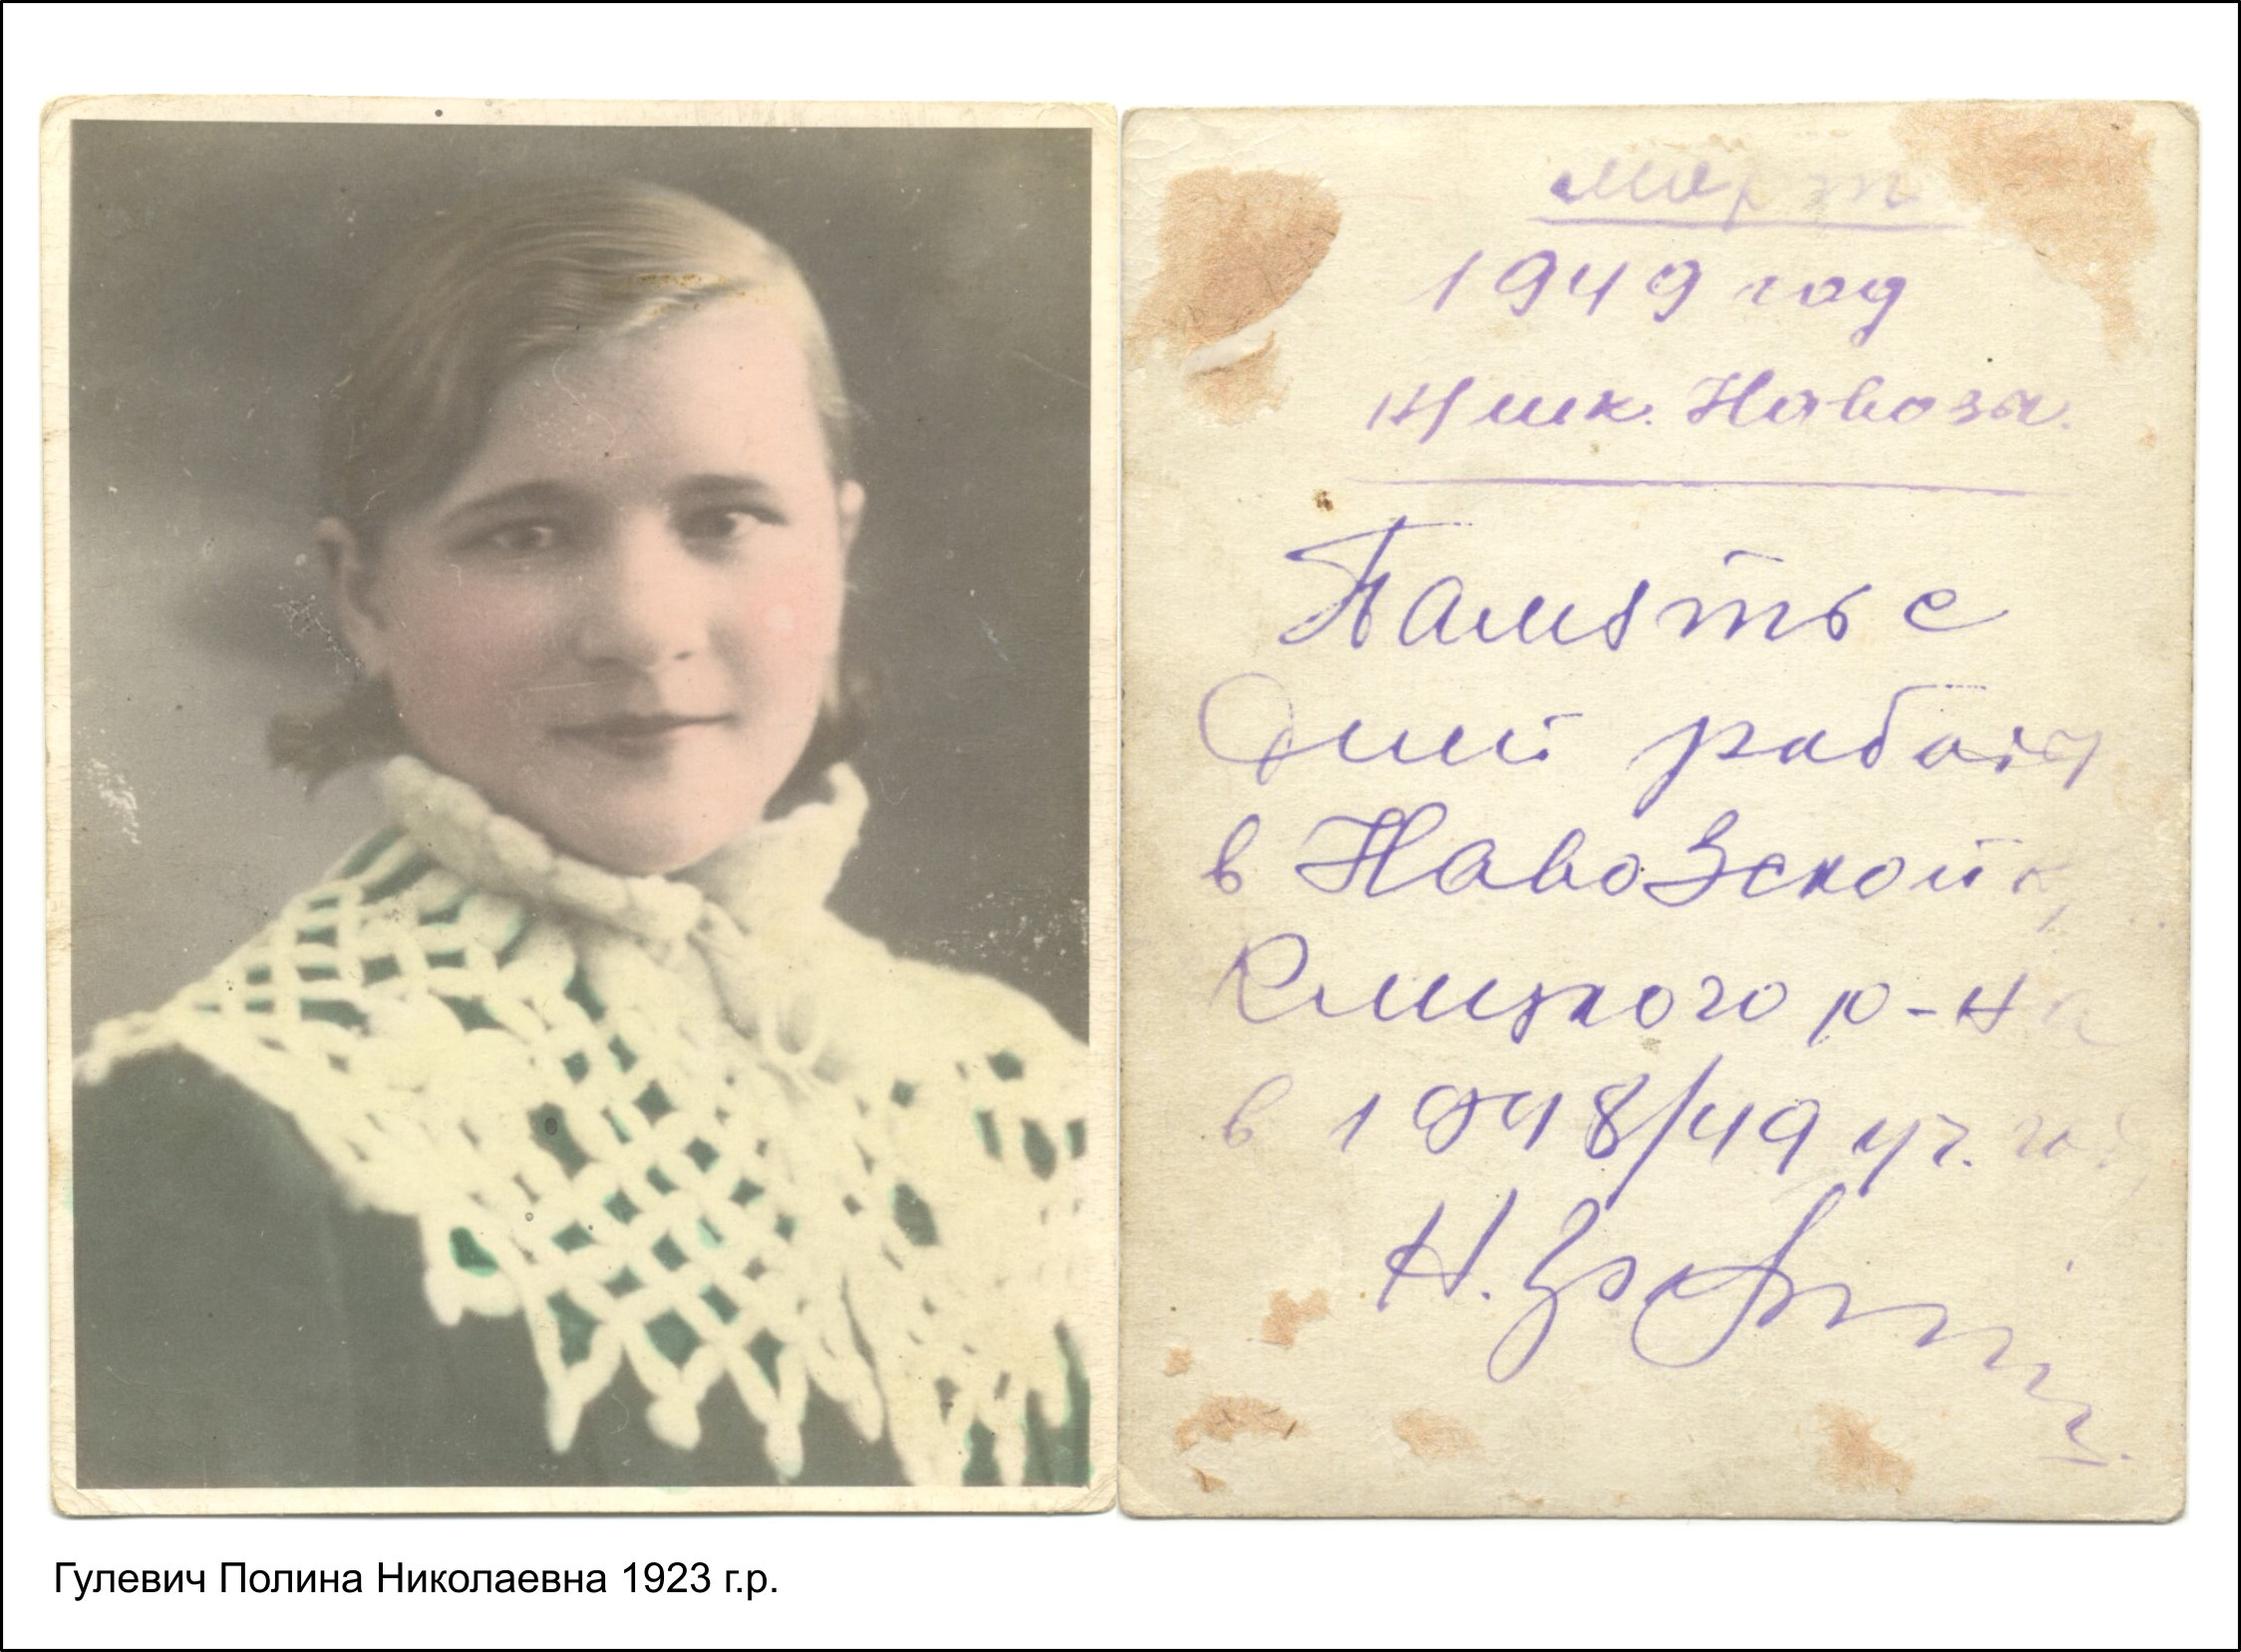 март
1949 год
шк. Навозы.
Память с
Дний работы
в НавоЗской
р-на
в 1948/49 уч. год
Н.
Гулевич Полина Николаевна 1923 г.р.